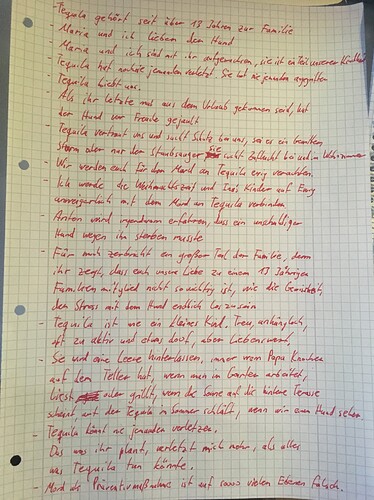 - Tequila gehört seit über 13 Jahren zur Familie
- Maria und ich lieben den Hund
- Maria und ich sind mit ihr aufgewachsen, sie ist ein Teil unserer Kindheit
- Tequila hat noch nie jemanden verletzt. Sie hat nie jemanden angegriffen
- Tequila liebt uns.
- Als ihr letzte mal aus dem Urlaub gekommen seid, hat
der Hund vor Freude gejault
- Tequila vertraut uns und sucht Schutz bei uns, sei es ein Gewitter,
Sturm aber nur den Staubsauger sie sucht Zuflucht bei und im Wohnzimmer
- Wir werden euch für den Mord an Tequila ewig verachten.
- Ich werde die Weihnachtszeit und Kinder auf Ewig
mit dem Mord an Tequila verbinden
- Anton wird irgendwann erfahren, dass ein unschuldiger
Hund wegen ihm sterben musste
- Für mich zerbricht ein großer Teil der Familie, denn
ihr zeigt, dass euch unsere Liebe zu einem 13 Jährigen
Familienmitglied nicht so wichtig ist, wie die Gewissheit,
den Stress mit dem Hund endlich los zu sein
- Tequila ist wie ein kleines Kind. Treu, anhänglich,
oft zu aktiv und etwas doof, aber Liebenswert,
- Sie wird eine Leere Hinterlassen, immer wenn Papa Knochen
auf dem Teller hat, wenn man im Garten arbeitet,
liest oder grillt, wenn die Sonne auf die hintere Terasse
scheint, auf der Tequila im Sommer schläft, wenn wir einen Hund sehen
- Tequila könnt nie jemanden verletzen.
- Das was ihr plant, verletzt mich mehr, als alles
was Tequila tun könnte.
- Mord als Präventivmaßnahme ist auf sooo vielen Ebenen falsch.